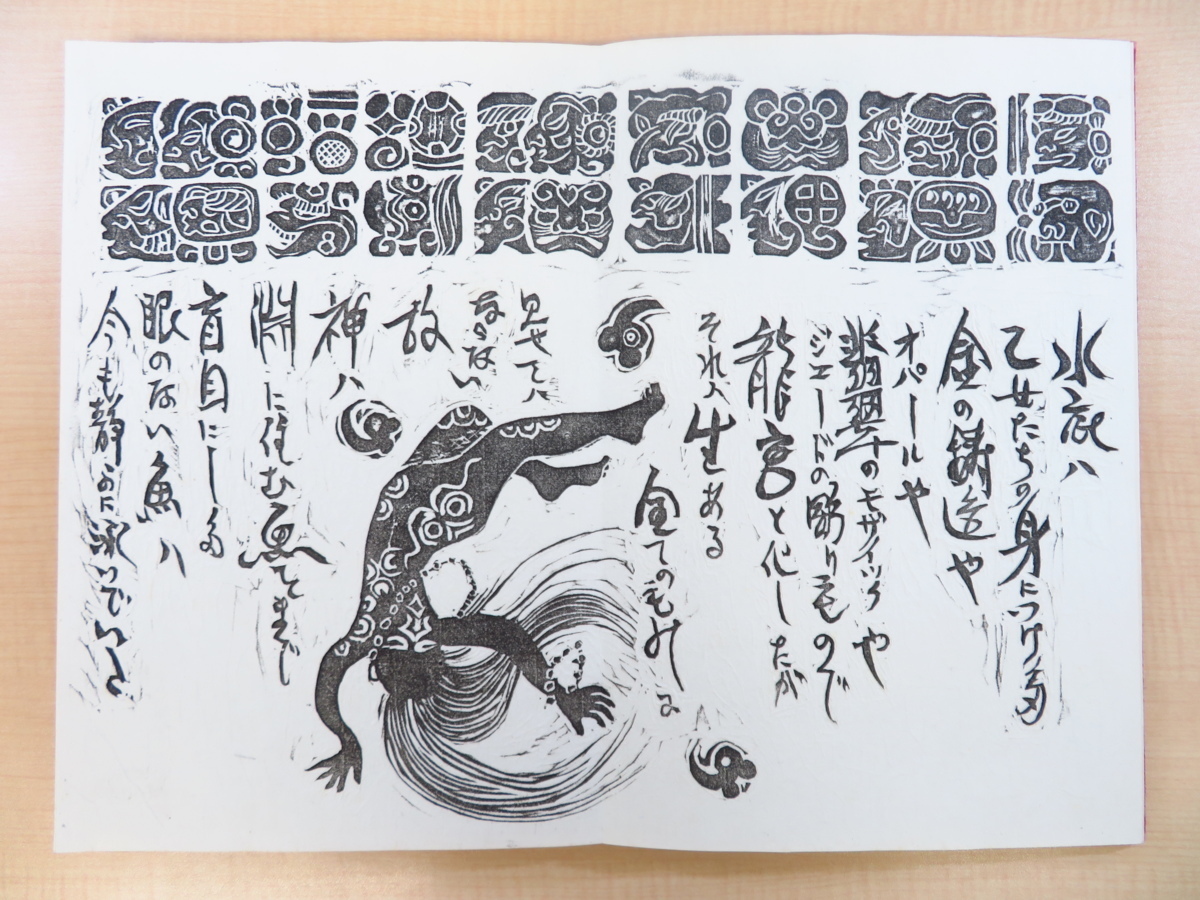 水底ハ
乙女たちの身につけた
金の鋳造や
オパールや
翡翠のモザイックや
ジェードの彫りもので
龍宮と化したが
それハ生ある
全てのものに
見せてハ
ならない
故
神ハ
淵に住む魚までも
盲目にした
眼のない魚ハ
今も静かに泳いでいた